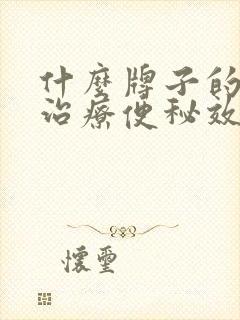 什麼牌子的
治療便秘效
懷璽